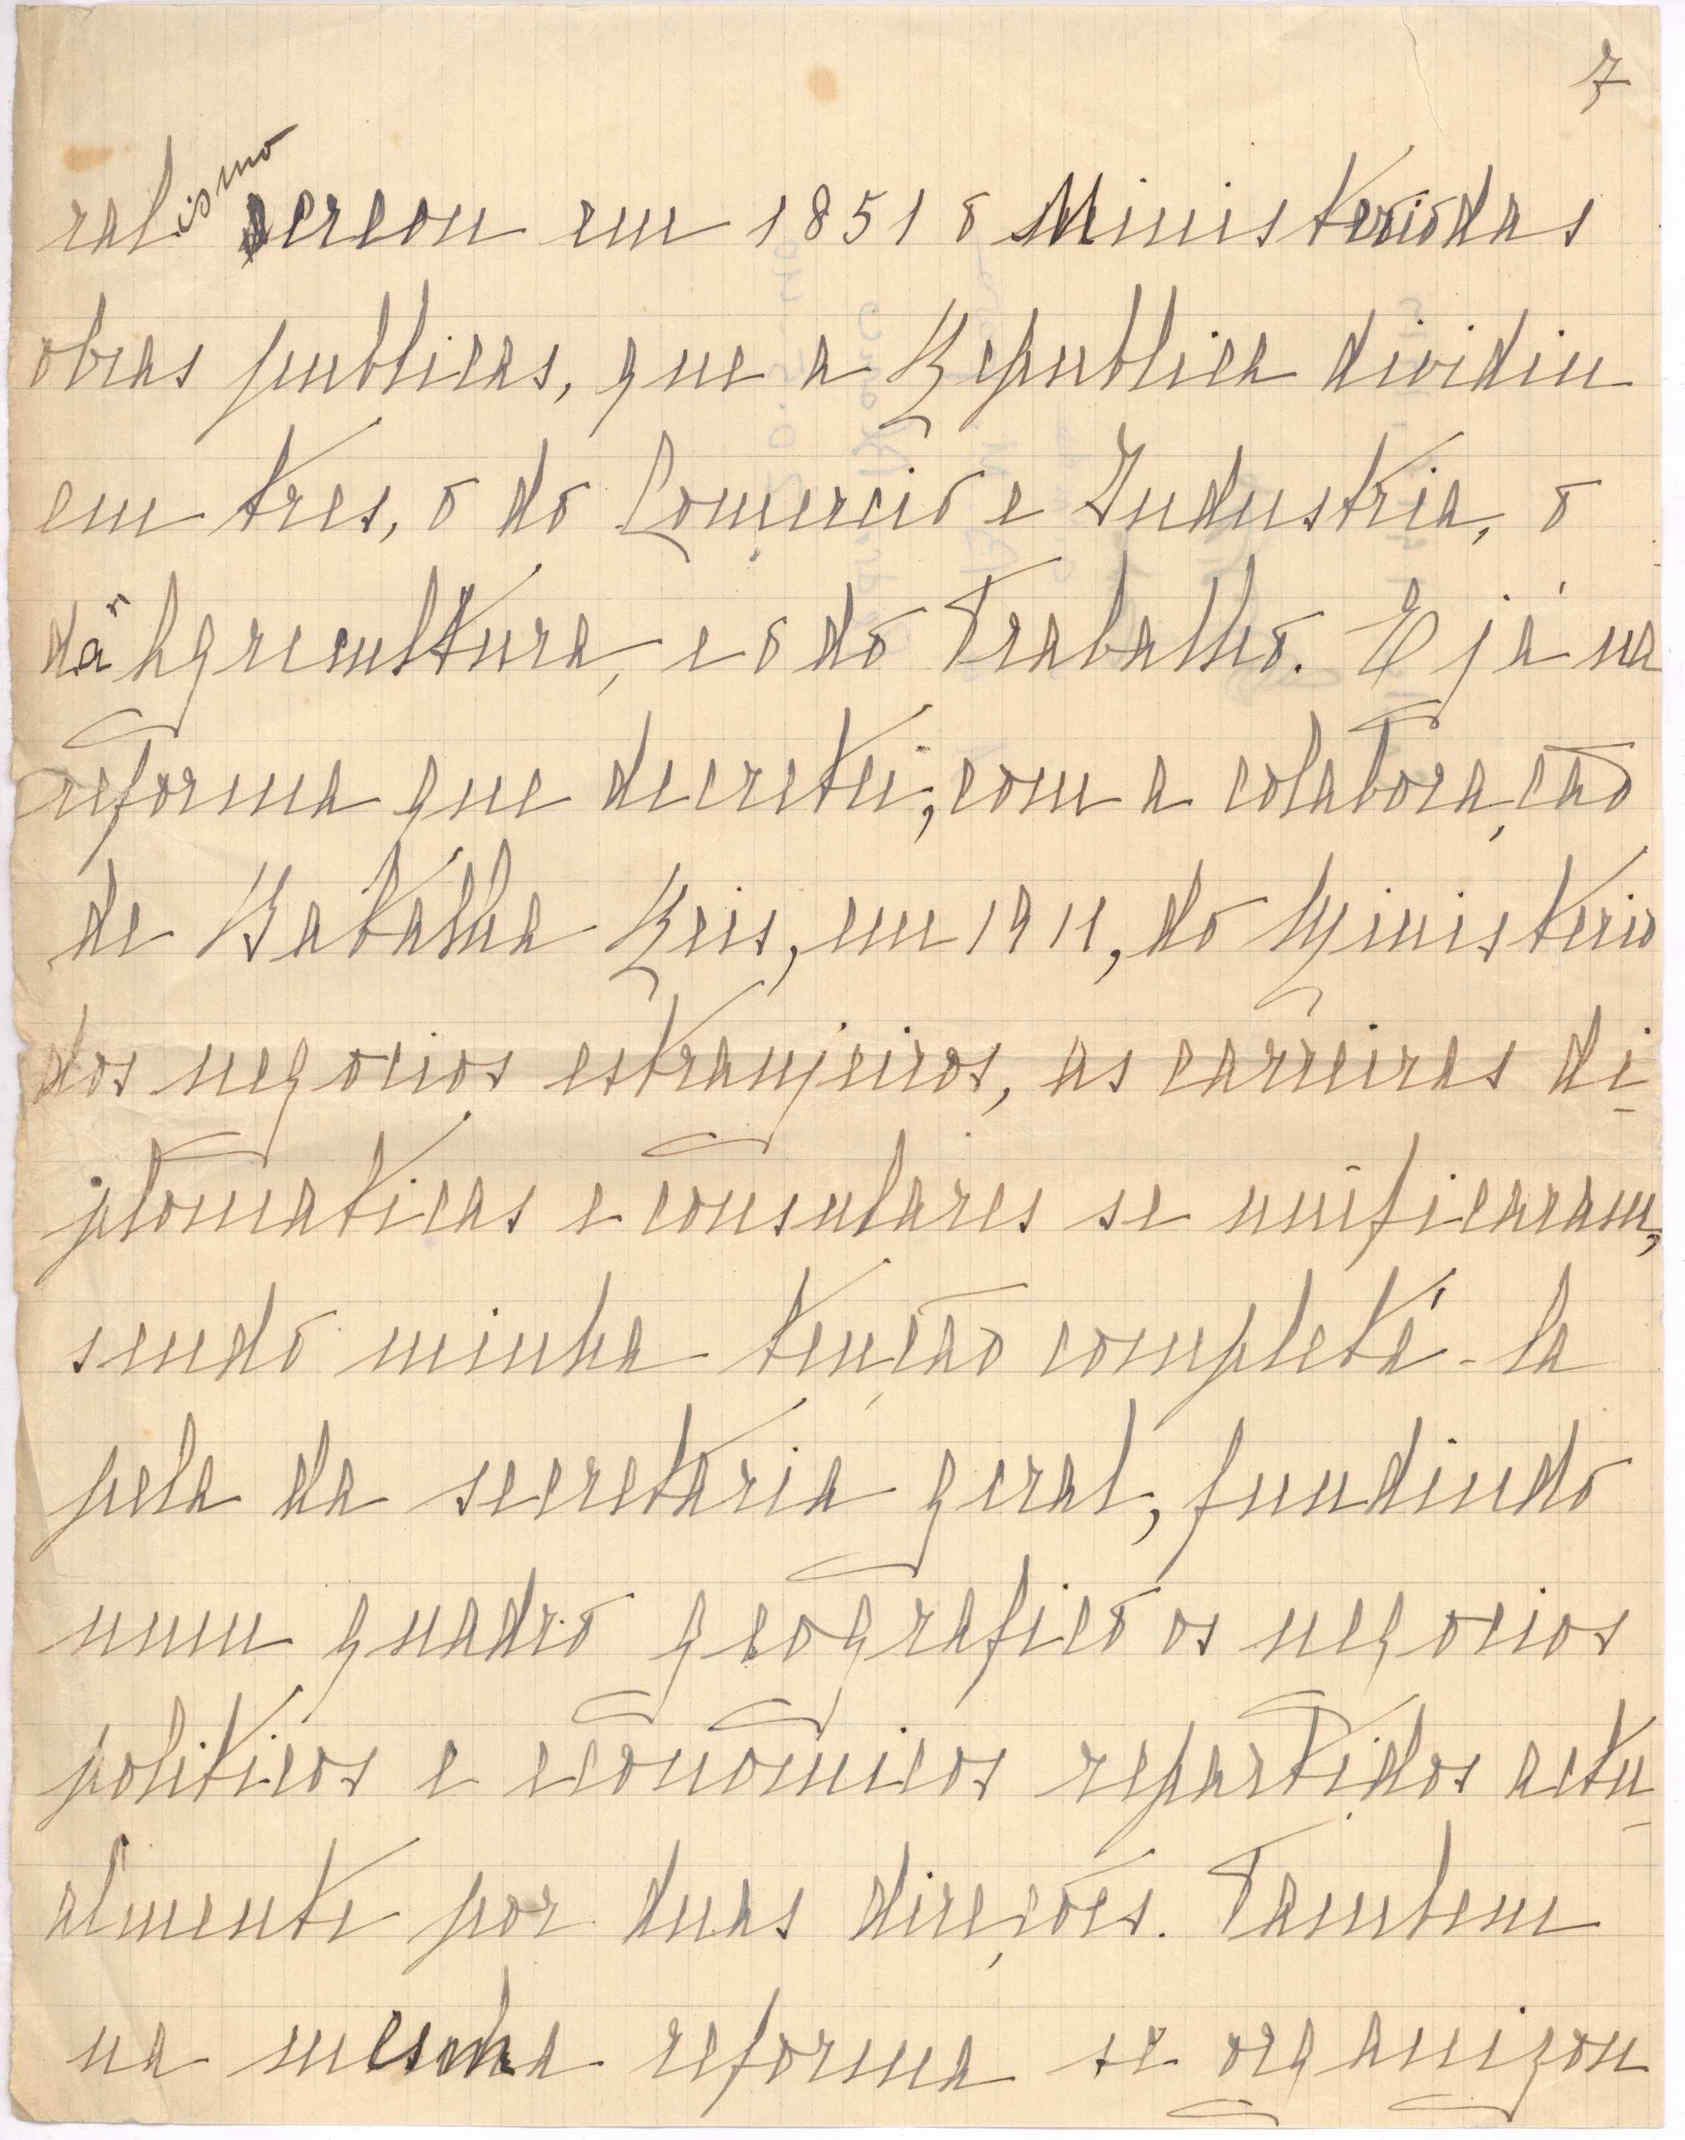 7
ralismo creou em 1851 o Ministerio das
obras publicas, que a Republica dividiu
em tres, o do Comercio e Industria, o
da Agricultura, e o do Trabalho. E já na
reforma que decretei, com a colaboração
de Batalha Reis, em 1911, do Ministerio
dos negocios estranjeiros, as carreiras di-
plomaticas e consulares se unificaram,
sendo minha tenção completá-la
pela da secretaria geral, fundindo
num quadro geografico os negocios
politicos e económicos repartidos actu-
almente por duas direções. Tambem
na mesma reforma se organizou